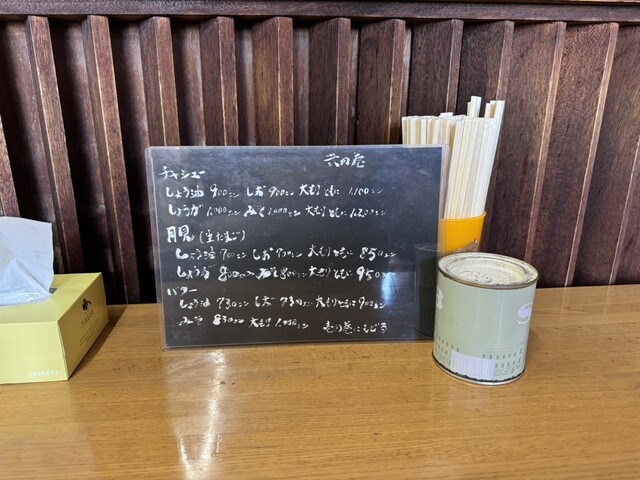 弐の巻
チャシュー
しょう油 900エン しお 900エン 大もり ともに 1,100エン
しょうが 1,000エン みそ 1,000エン 大もり ともに 1,200エン
月見 (生たまご)
しょう油 700エン しお 700エン 大もり ともに 850エン
しょうが 800エン みそ 800エン 大もり ともに 950エン
バター
しょう油 730エン しお 730エン 大もり ともに 900エン
みそ 830エン 大もり 1,000エン 壱の巻にもどる